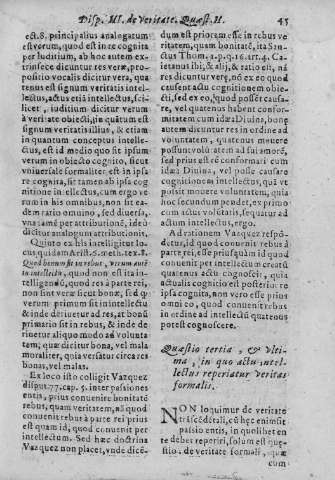 Disp. VI. de Veritate. Quæst. II. 45
est. 8. principalius analogatum
est verum, quod est in re cognita
per iuditium, ab hoc autem ex-
trinsece dicuntur res veræ, pro-
positio vocalis dicitur vera, qua
tenus est signum veritatis intel-
lectus, actus etiã intellectus, sci-
licet, iuditium dicitur verum
à veritate obiecti, in quãtum est
signum veritatis illius, & etiam
in quantum conceptus intelle-
ctus, est id medio quo sit ipsum
verum in obiecto cognito, sicut
vniuersale formaliter est in ipsa
re cognita, fit tamen ab ipsa cog
nitione intellectus, cum ergo ve
rum in his omnibus, non sit ea-
dem ratio omnino, sed diuersa,
vna tamẽ per attributionẽ, ideò
dicitur analogum attributionis.
Quinto ex his intelligitur lo-
cus quidam Aristo. 6. meth. tex. 8.
Quod bonum sit in rebus, verum autẽ
in intellectu, quod non est ita in-
telligendũ, quod res à parte rei,
non sint veræ sicut bonæ, sed q̃
verum primum sit in intellectu
& inde deriuetur ad res, at bonũ
primario sit in rebus, & inde de
riuetur aliquo modo ad volunta
tem; quæ dicitur bona, vel mala
moraliter, quia versatur circa res
bonas, vel malas.
Ex loco isto colligit Vazquez
disput. 77. cap. 5. inter passiones
entis, prius conuenire bonitatẽ
rebus, quam veritatem, nã quod
conuenit rebus à parte rei prius
est quam id, quod conuenit per
intellectum. Sed hæc doctrina
Vazquez non placet, vnde dicẽ-
dum est priorem esse in rebus ve
ritatem, quam bonitatẽ, ita San-
ctus Thom. 1. p. q. 16. art. 4. Ca-
ietanus ibi, & alij, & ratio est, nã
res dicuntur veræ, nõ ex eo quod
causent actu cognitionem obie-
cti, sed ex eo, quod posset causa-
re, vel quatenus habent confor-
mitatem cum idæa Diuina, bonæ
autem dicuntur res in ordine ad
voluntatem, quatenus mouere
possunt voluntatem ad sui amorẽ,
sed prius est rẽ conformari cum
idæa Diuina, vel posse causare
cognitionem in intellectu, quã vt
possit mouere voluntatem, quia
hoc secundum pendet, ex primo
cum actus volũtatis, sequatur ad
actum intellectus, ergo.
Ad rationem Vazquez respõ-
detur, id quod conuenit rebus à
parte rei, esse prius quàm id quod
conuenit per intellectum creatũ
quatenus actu cognoscẽs, quia
actualis cognitio est posterior re
ipsa cognita, non vero esse prius
omni eo, quod conuenit rebus
in ordine ad intellectũ quatenus
potest cognoscere.
Quæstio tertia, & vlti-
ma, in quo actu intel-
lectus reperiatur veritas
formalis.
NON loquimur de veritate
trãscẽdẽtali, cũ hæc enim sit
passio entis, in quolibet en
te debet reperiri, solum est quæ-
stio de veritate formali,
cum